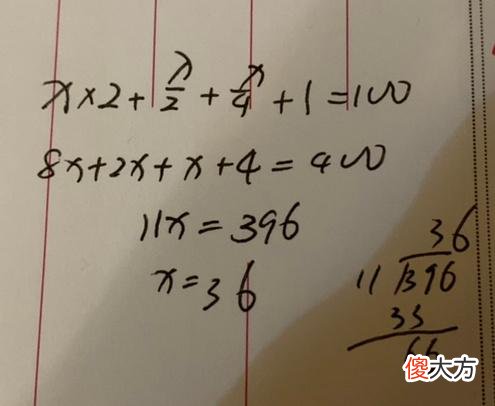 x×2+x/2+x/4+1=100
8x+2x+x+4=400
11x=396
x=36
36
11)396
33
66
傻大方